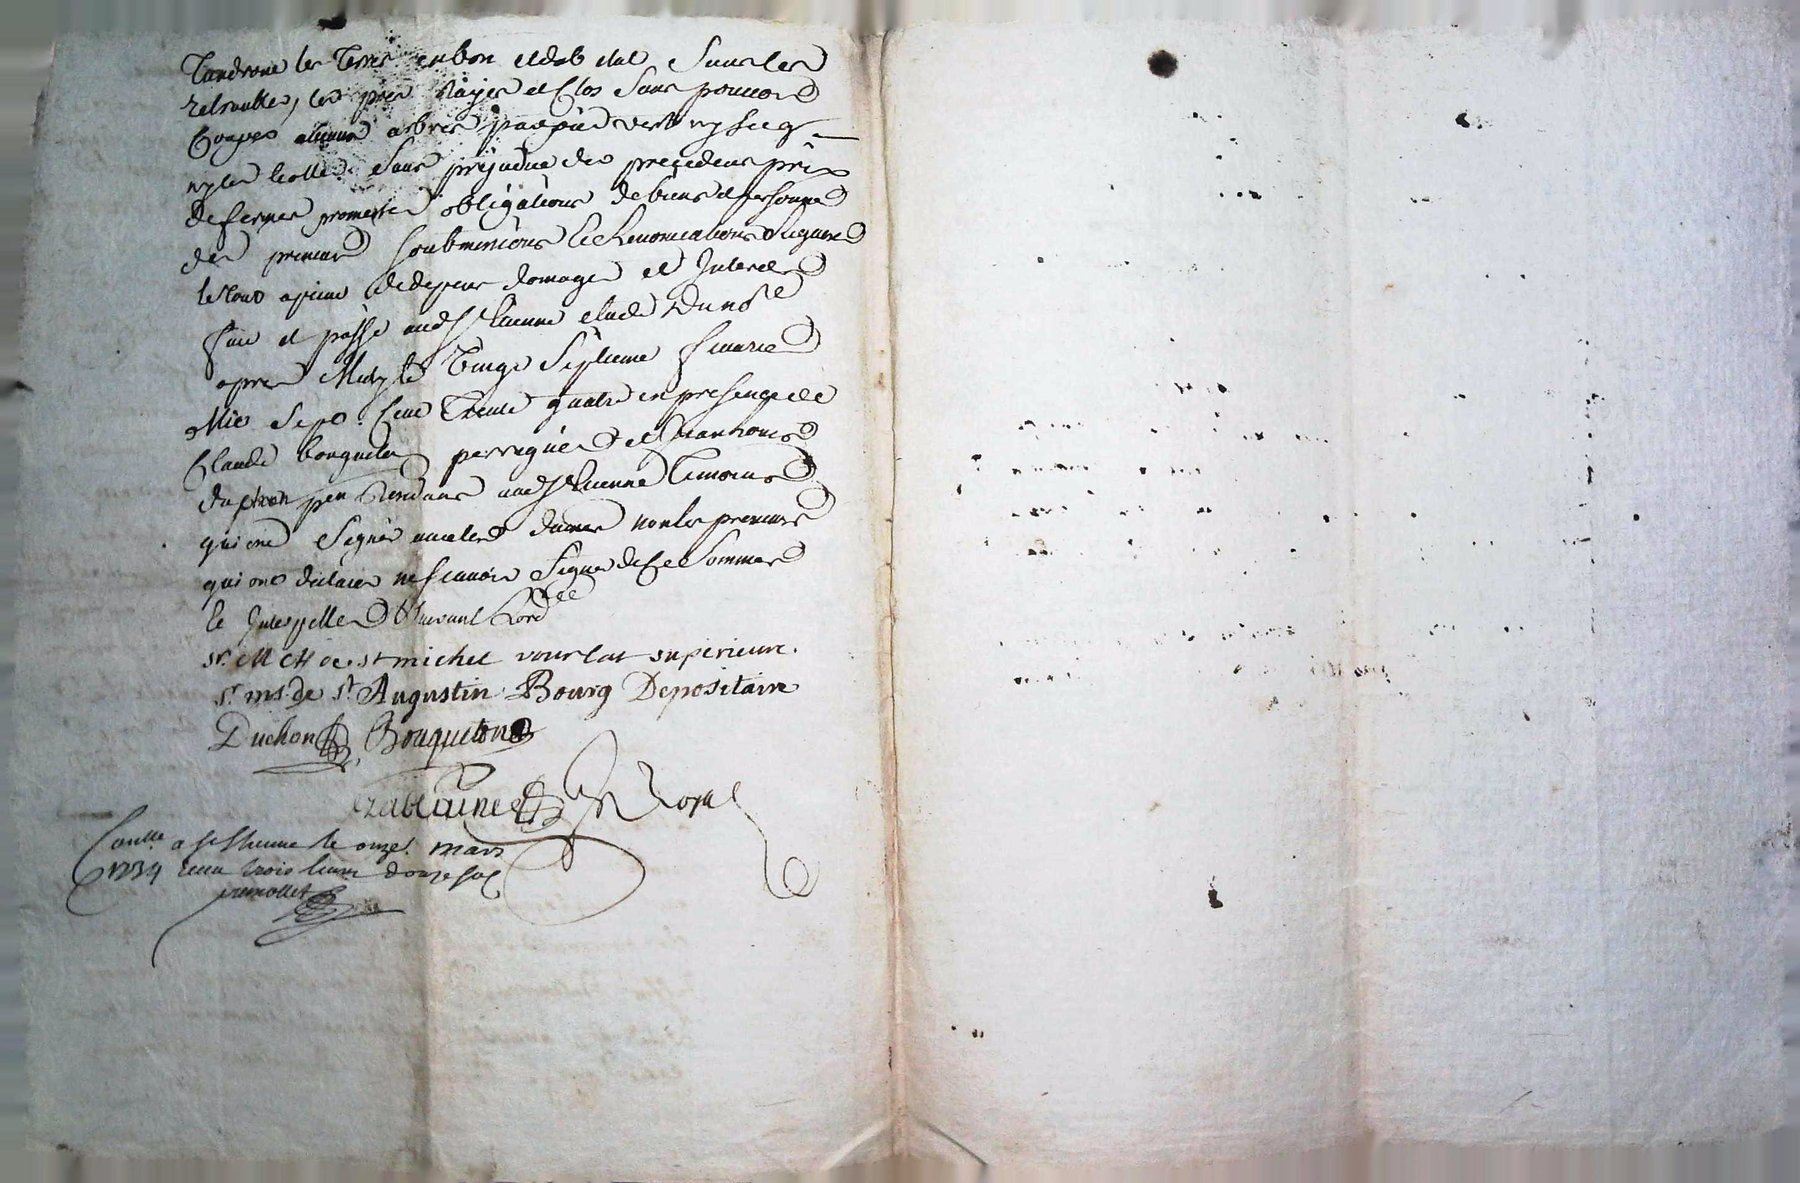 Tiendront les Terres en bon et dob etat Sans les
retroubler, les prés Rayés et Clos Sans pouvoir
Couper aucuns arbres par pied vert ny secq
ny les Colle. Sans prejudice des precedens prix
de fermes promesses obligations de biens et personne
des preneurs Soubmissions et Renonciations Requises
le tout a peine de depens domages et Interets
fait et passé aud St Etienne etude du nore
apres Midy le Vingt Septieme fevrier
Mil Sept Cent Trente quatre en presence de
Claude bouqueton perruquier et Jean Louis
duchon pen aud St Etienne Temoins
qui ont Signés avec les dames non les preneurs
qui ont declarés ne scavoir Signer de Ce Sommes
le Interpelles Suivant Lordce
sr. M de st michel vourlat superieure.
sr. ms. de st Augustin Bourg Depositaire
Duchon Bouqueton
nre Royal
Conlle a St Etienne le onze mars
1734 receu trois livres douze sols